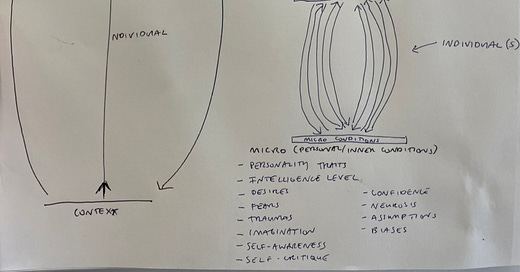 INDIVIDUAL
CONTEXT
INDIVIDUAL(S)
MICRO CONDITIONS
MICRO (PERSONAL/INNER CONDITIONS)
- PERSONALITY TRAITS
- INTELLIGENCE LEVEL
- DESIRES
- FEARS
- TRAUMAS
- IMAGINATION
- SELF-AWARENESS
- SELF-CRITIQUE
- CONFIDENCE
- NEUROSIS
- ASSUMPTIONS
- BIASES